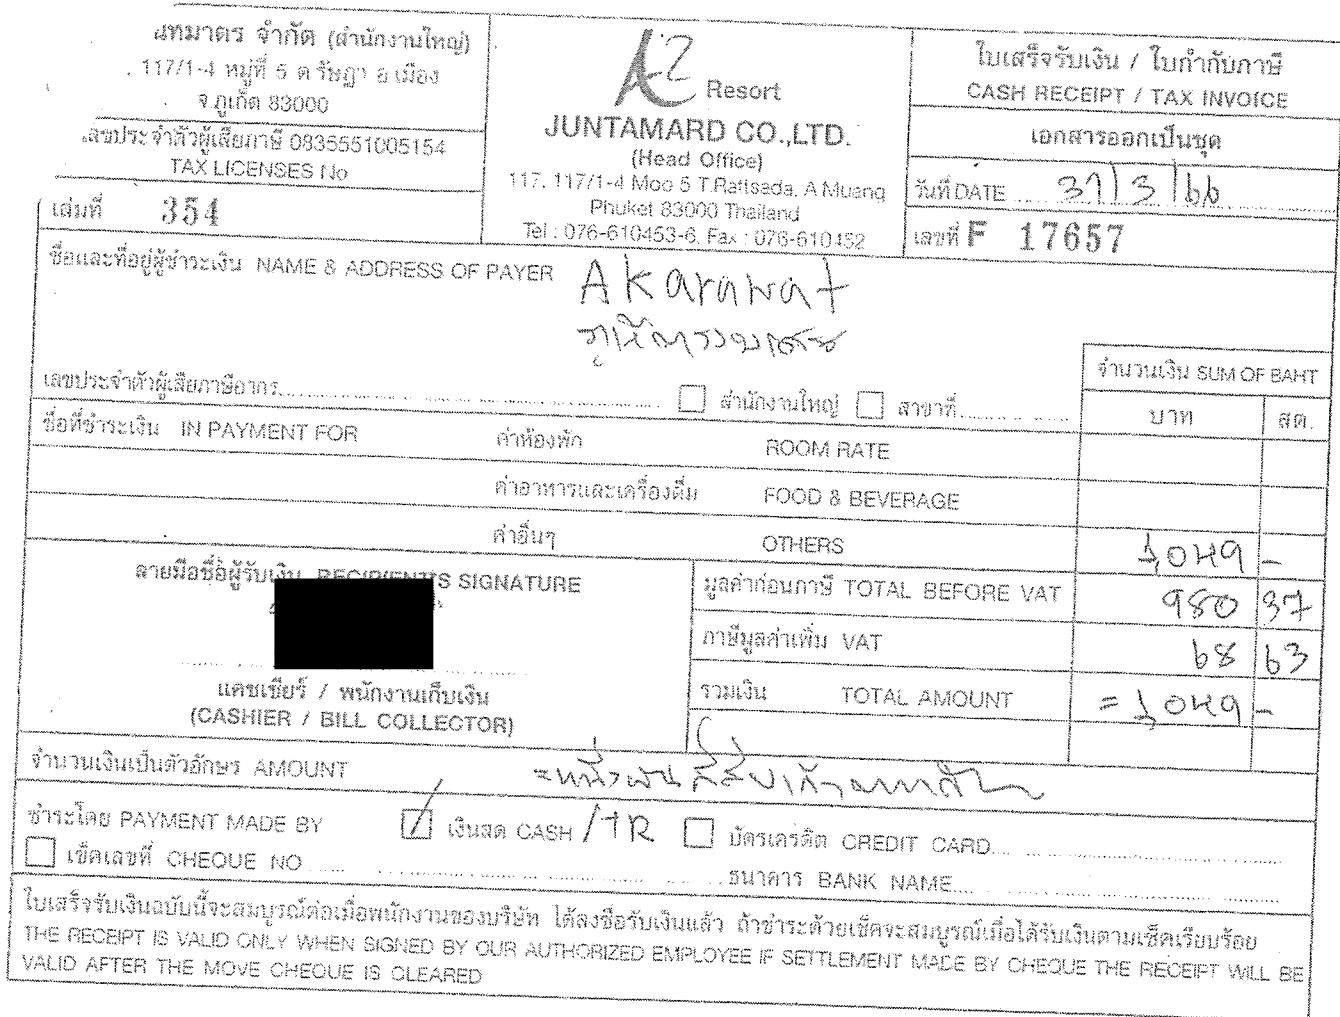 นทมาตร จำกัด (สำนักงานใหญ่)
117/1-4 หมู่ที่ 5 ต รัษฎา อ เมือง
จ.ภูเก็ต 83000
เลขประจำตัวผู้เสียภาษี 0835551005154
TAX LICENSES No
เล่มที่ 354
A2 Resort
JUNTAMARD CO.,LTD.
(Head Office)
117, 117/1-4 Moo 5 T.Ratisada, A.Muang
Phuket 83000 Thailand
Tel : 076-610453-6, Fax : 076-610452
ใบเสร็จรับเงิน / ใบกำกับภาษี
CASH RECEIPT / TAX INVOICE
เอกสารออกเป็นชุด
วันที่ DATE 31/3/66
เลขที่ F 17657
ชื่อและที่อยู่ผู้ชำระเงิน NAME & ADDRESS OF PAYER Akarawat
เลขประจำตัวผู้เสียภาษีอากร สำนักงานใหญ่ สาขาที่
จำนวนเงิน SUM OF BAHT
บาท สต.
ชื่อที่ชำระเงิน IN PAYMENT FOR ค่าห้องพัก ROOM RATE
ค่าอาหารและเครื่องดื่ม FOOD & BEVERAGE
ค่าอื่นๆ OTHERS 1,049 -
ลายมือชื่อผู้รับเงิน RECIPIENT'S SIGNATURE
แคชเชียร์ / พนักงานเก็บเงิน
(CASHIER / BILL COLLECTOR)
มูลค่าก่อนภาษี TOTAL BEFORE VAT 980 37
ภาษีมูลค่าเพิ่ม VAT 68 63
รวมเงิน TOTAL AMOUNT = 1,049 -
จำนวนเงินเป็นตัวอักษร AMOUNT =หนึ่งพันสี่สิบเก้าบาทถ้วน
ชำระโดย PAYMENT MADE BY เงินสด CASH /TR บัตรเครดิต CREDIT CARD
เช็คเลขที่ CHEQUE NO ธนาคาร BANK NAME
ใบเสร็จรับเงินฉบับนี้จะสมบูรณ์ต่อเมื่อพนักงานของบริษัท ได้ลงชื่อรับเงินแล้ว ถ้าชำระด้วยเช็คจะสมบูรณ์เมื่อได้รับเงินตามเช็คเรียบร้อย
THE RECEIPT IS VALID ONLY WHEN SIGNED BY OUR AUTHORIZED EMPLOYEE IF SETTLEMENT MADE BY CHEQUE THE RECEIPT WILL BE
VALID AFTER THE MOVE CHEQUE IS CLEARED